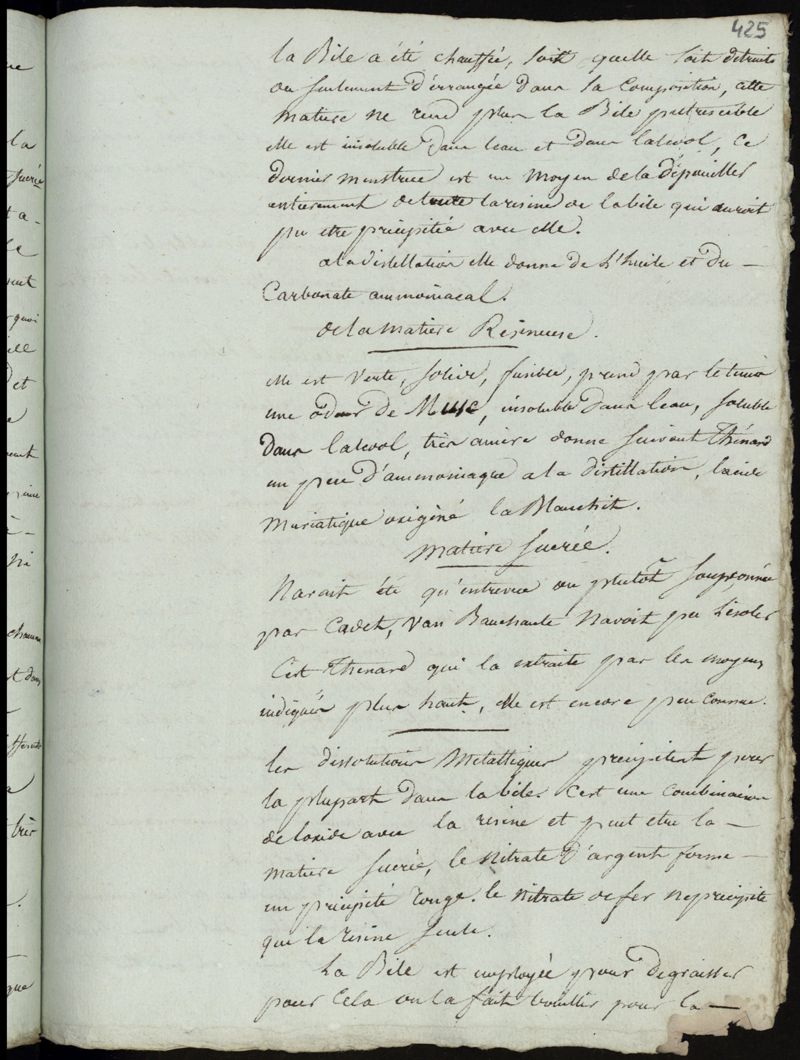 425
la Bile a été chauffée, soit quelle soit detruite
ou seulement dérrangée dans sa Composition, cette
matiere ne rend plus la Bile putrescible
elle est insoluble dans leau et dans lalcool, Ce
dernier menstrue est un moyen de la dépouiller
entierement de toute la resine de la bile qui auroit
pu etre précipitée avec elle.
a la distellation elle donne de L'huile et du —
Carbonate ammoniacal.
de la matiere Resineuse.
elle est Verte, solide, fusible, prend par le tems
une odeur de Musc, insoluble dans leau, soluble
dans lalcool, très amere donne suivant Thénard
un peu d'ammoniaque a la distillation, lacide
Muriatique oxigéné la Blanchit.
Matiere Sucrée.
Navait été qu'entrevue ou plutôt soupçonnée
par Cadet, Van Bauchaute Navoit pu L'isoler
C'est Thénard qui la extraite par les moyens
indiqués plus haut, elle est encore peu connue.
les dissolutions Metalliques precipitent pour
la plupart dans la bile. C'est une Combinaison
de loxide avec la resine et peut etre la —
matiere Sucrée, le Nitrate d'argent forme —
un precipité rouge. le Nitrate de fer ne precipite
que la resine seule.
La Bile est employée pour Degraisser
pour Cela on la fait bouillir pour la —